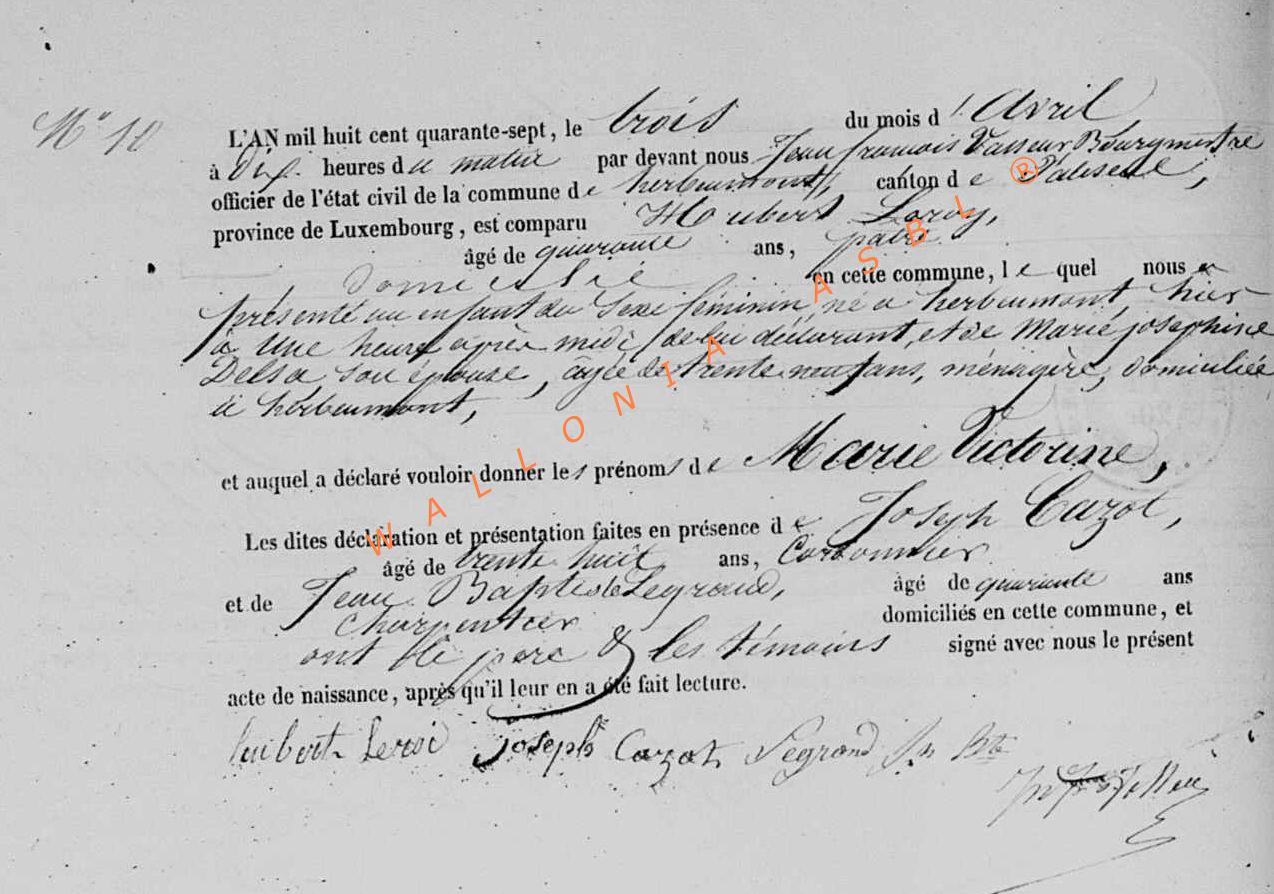 N° 10
L'AN mil huit cent quarante-sept, le trois du mois d' Avril,
à dix heures du matin par devant nous Jean françois Vasseur Bourgmestre
officier de l'état civil de la commune de herbeumont, canton de Paliseul,
province de Luxembourg, est comparu Hubert Leroy,
âgé de quarante ans, patre
domicilié en cette commune, lequel nous a
présenté un enfant du sexe féminin, né a herbeumont, hier
à une heure après midi de lui déclarant, et de Marie josephine
Delsa son épouse, âgée de trente neuf ans, ménagère, domiciliée
à herbeumont,
et auquel a déclaré vouloir donner les prénoms de Marie Victorine,
Les dites déclaration et présentation faites en présence de Joseph Cazot,
âgé de trente huit ans, Cordonnier
et de Jean Baptiste Legrand, âgé de quarante ans
charpentier domiciliés en cette commune, et
ont le père & les témoins signé avec nous le présent
acte de naissance, après qu'il leur en a été fait lecture.
huibert Leroi Joseph Cazot Legrand Jn Bte
WALLONIA ASBL ®